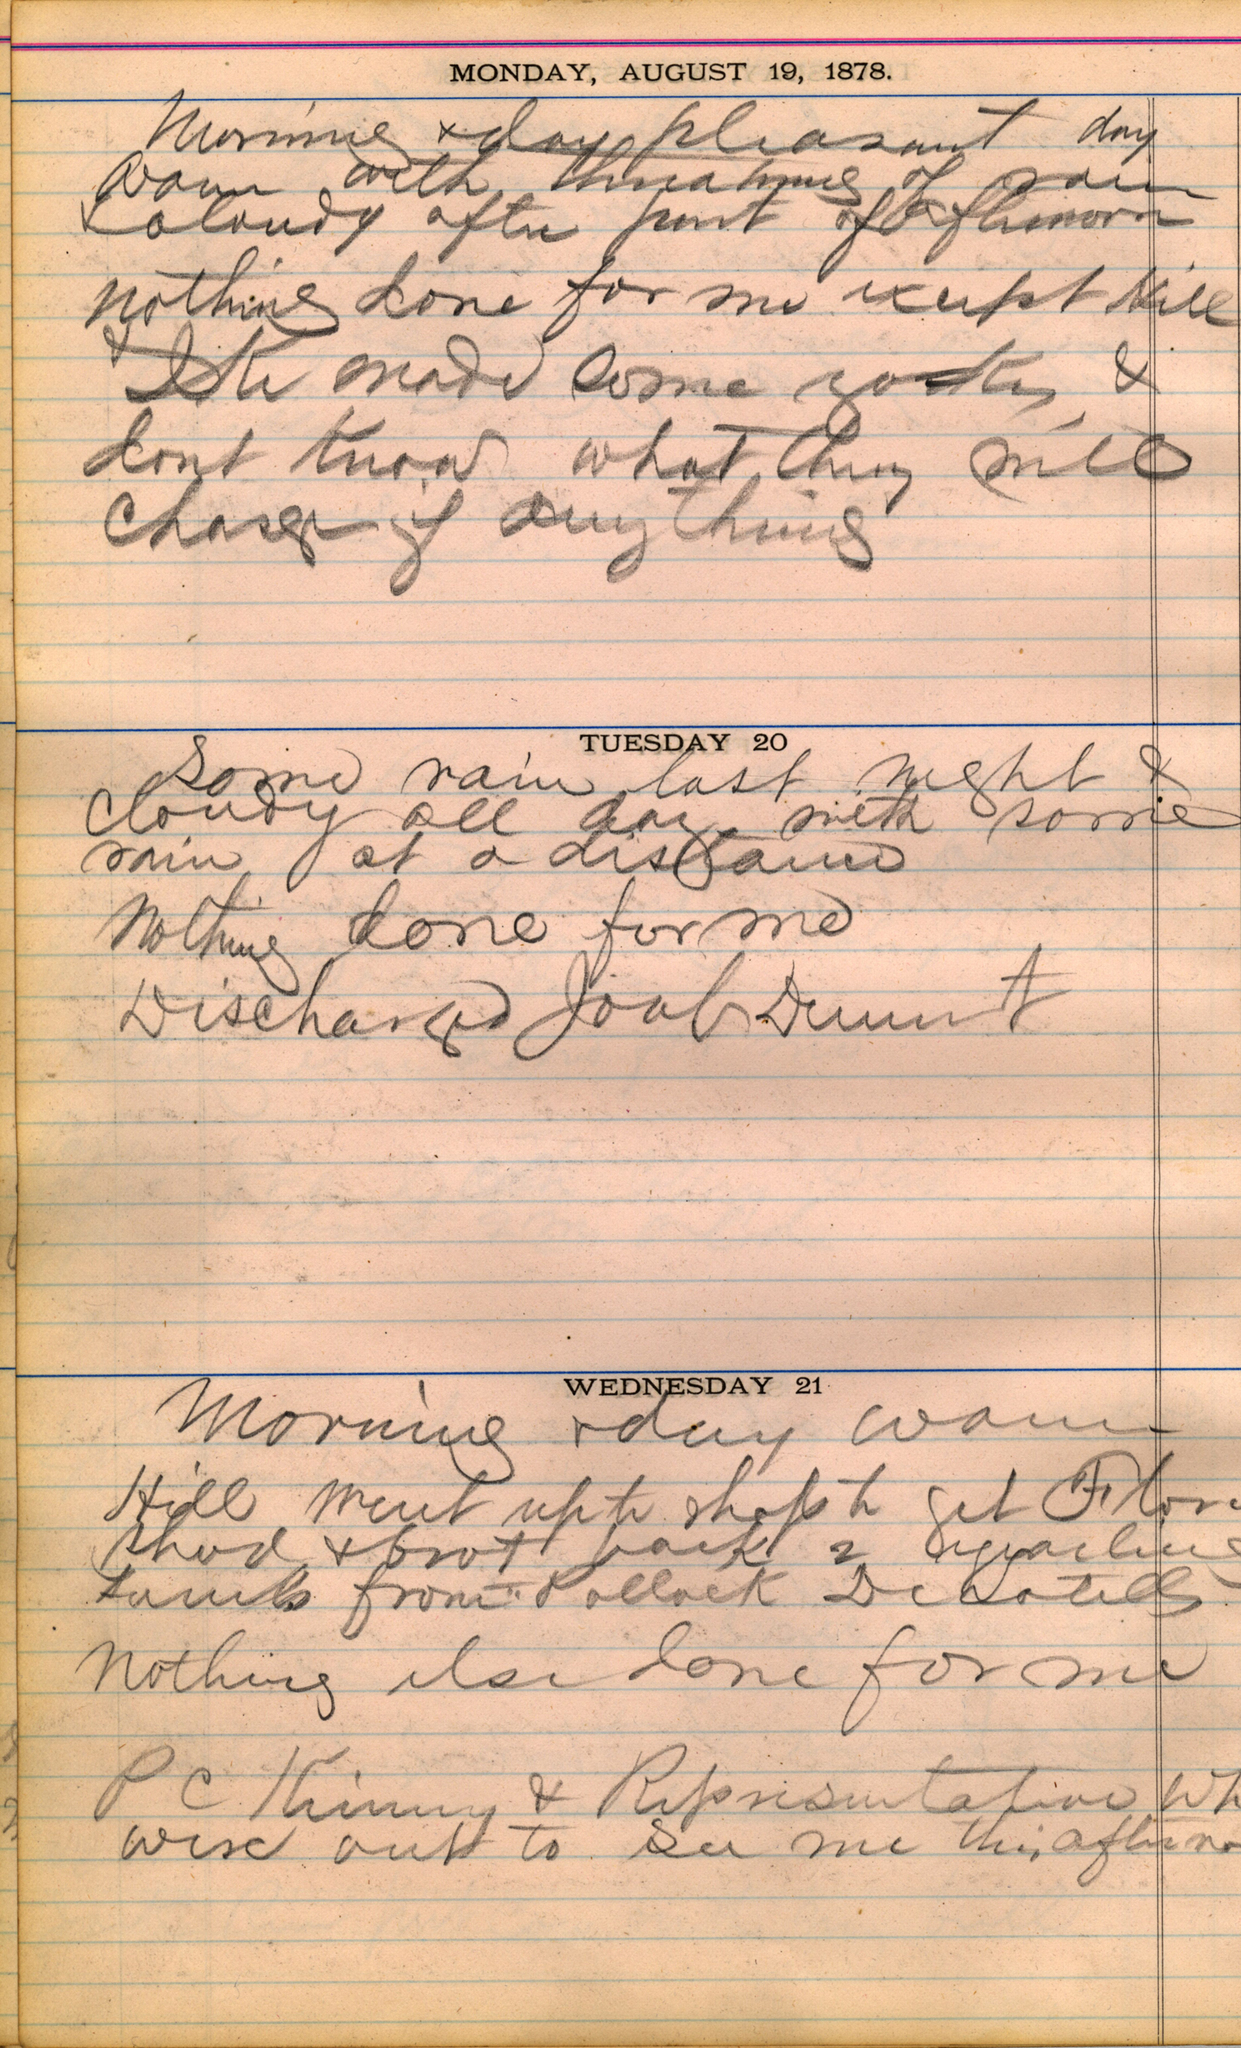 MONDAY, AUGUST 19, 1878.
Morning & day pleasant day
warm with threatning of rain
& cloudy after part of afternoon
nothing done for me except Hill
& Ike made some &
dont know what they will
charge if anything
TUESDAY 20
Some rain last night &
cloudy all day with some
rain at a distance
Nothing done for me
Discharged Joab
WEDNESDAY 21
Morning & day warm
Hill went up to shop to get
shod & brot back 2
lambs from Pollock
Nothing else done for me
P C Kinney & Representative
were out to see me this